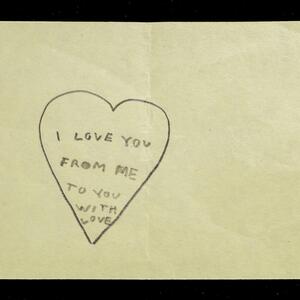 I LOVE YOU
FROM ME
TO YOU
WITH
LOVE